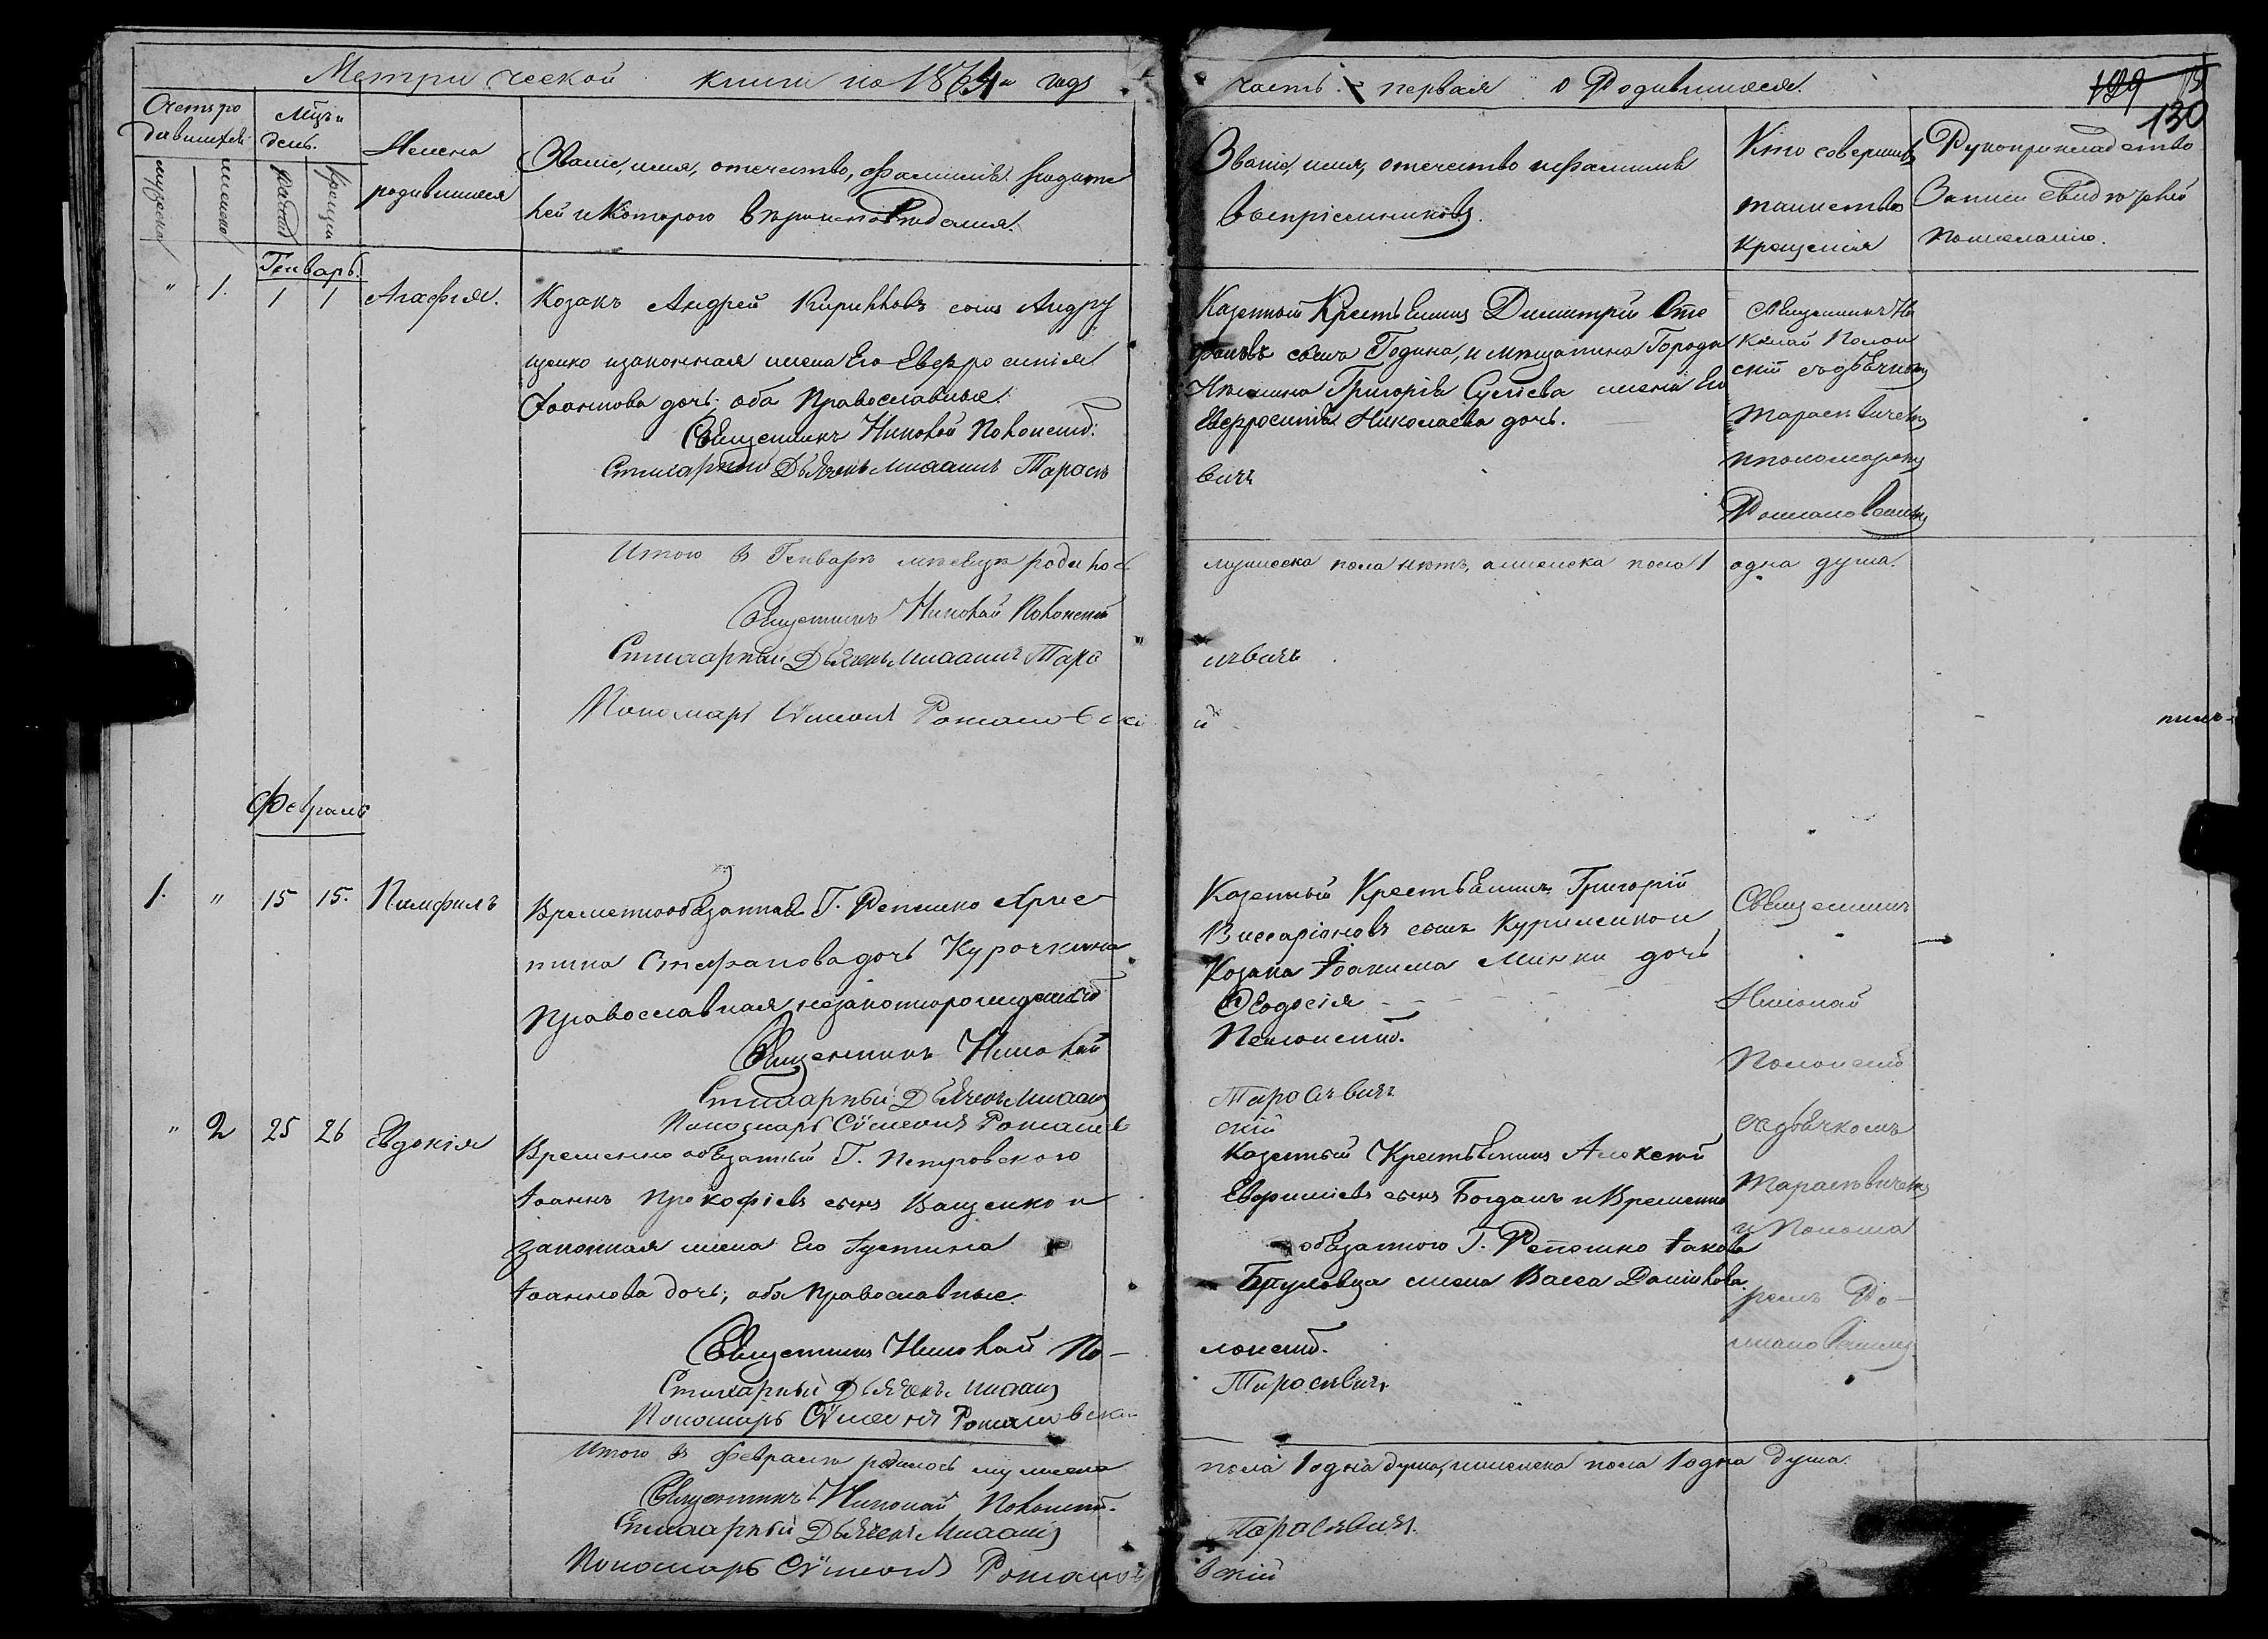 Метрической книги на 1864й годъ
часть первая о Родившихся.
129
130
Счетъ ро
дившихся
Мць и
день.
Имена
родившихся
мужеска
женска
рожден
крещен
Званіе, имя, отечество, фамилія родите
лей и Котораго вѣроисповѣданія.
Званіе, имя, отечество и фамилія
воспріемниковъ.
Кто совершилъ
таинство
крещенія
Рукоприкладство
Записи свидѣтелей
по желанію.
Генварь.
" 1. 1 1 Агафія.
Козакъ Андрей Кириловъ сынъ Андру
щенко и законная жена Его Евфросинія
Іоаннова дочь, оба Православные.
Священникъ Николай Полонскій.
Стихарный Дьячекъ Михаилъ Тарась
Казенный Крестьянинъ Димитрій Сте
фановъ сынъ Година, и мѣщанина Города
Нѣжина Григорія жена Его
Евфросинія Николаева дочь.
вичь
Священникъ Ни
колай Полон
скій съ дьячкомъ
Тарасевичемъ
и пономаремъ
Романовскимъ
Итого въ Генварѣ мѣсяцѣ родилось
мужеска пола нѣтъ, а женска пола 1 одна душа.
Священникъ Николай Полонскій
Стихарный Дьячекъ Михаилъ Тара
сѣвичь
Пономарь Сѵмеонъ Романовскі
й
Февраль
1. " 15 15. Памфилъ
Временнообязанная Г. Репешко Хрис
тина Стефанова дочь Курочкина
Православная, незаконнорожденный
Священникъ Николай
Стихарный Дьячекъ Михаилъ
Пономарь Сѵмеонъ Романов
Казенный Крестьянинъ Григорій
Виссаріоновъ сынъ Куриленко и
Козака Іоакима Минки дочь
Ѳеодосія
Полонскій.
Тарасѣвичь
скій
Священникъ
Николай
Полонскій
съ дьячкомъ
Тарасевичемъ
и Понома
ремъ Ро-
мановскимъ
" 2 25 26 Евдокія
Временно обязанный Г. Петровского
Іоаннъ Прокофіевъ сынъ Ващенко и
законная жена Его Іустина
Іоаннова дочь, оба православные.
Священникъ Николай По-
Стихарный Дьячекъ Михаилъ
Пономарь Сѵмеонъ Романовскій
Казенный Крестьянинъ Алексѣй
Евфиміевъ сынъ Богданъ и Временно
обязанного Г. Репешко Іакова
жена Васса Данилова.
лонскій.
Тарасѣвичь
Итого въ Февралѣ родилось мужеска
пола 1 одна душа, и женска пола 1 одна душа.
Священникъ Николай Полонскій.
Стихарный Дьячекъ Михаилъ
Тарасѣвичь.
Пономарь Сѵмеонъ Романов
вскій